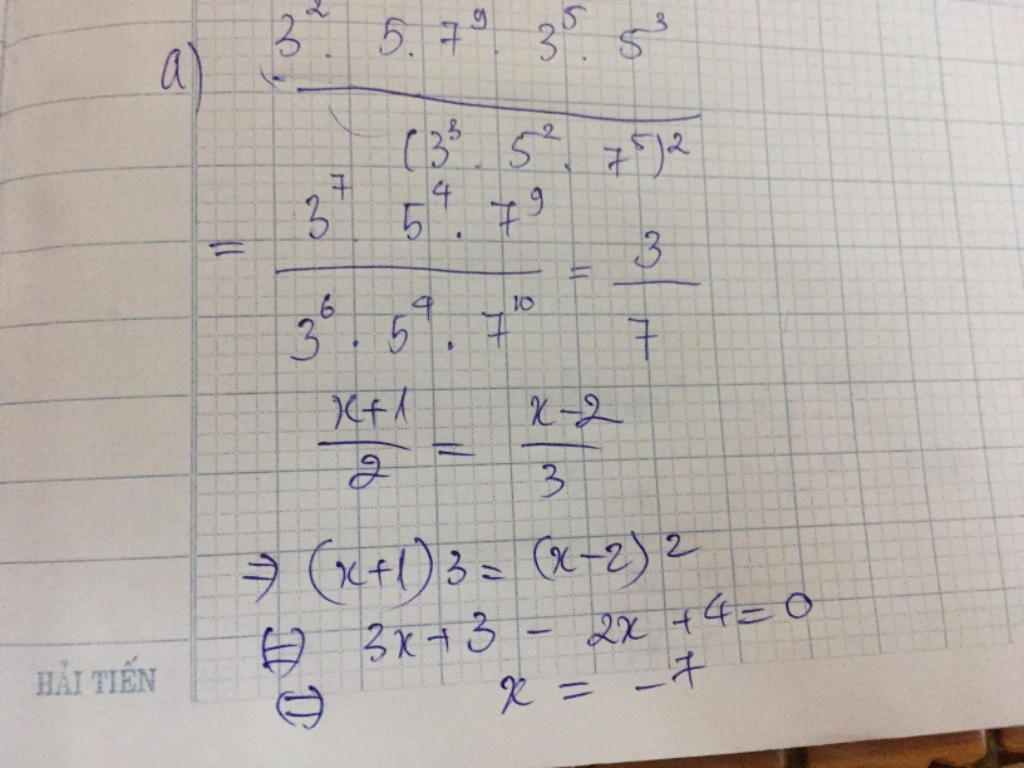 a) 3². 5. 7⁹. 3⁵. 5³
(3³. 5². 7⁵)²
= 3⁷. 5⁴. 7⁹ / 3⁶. 5⁴. 7¹⁰ = 3/7
x+1/2 = x-2/3
⇒ (x+1)3 = (x-2)2
⇔ 3x+3 - 2x +4 = 0
⇔ x = -7
HẢI TIẾN